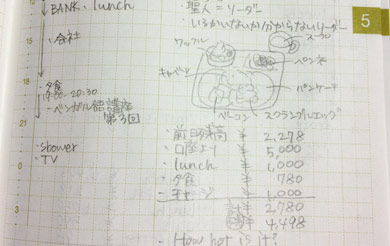 12
BANK、lunch
・会社
15
18
・夕食
19:00-20:30
・ベンガル語講座
第3回
21
・shower
・TV
0
3
・聖人=リーダー
・いるかいないか分からないリーダー
スープ
ワッフル
ペンネ
キャベツ
パンケーキ
ベーコン
スクランブルエッグ
・前日残高 ¥ 2,278
・口座より ¥ 5,000
・lunch ¥ 1,000
・夕食 ¥ 780
・チャージ ¥ 1,000
¥ 2,780
¥ 4,498
・How hot is it?
5